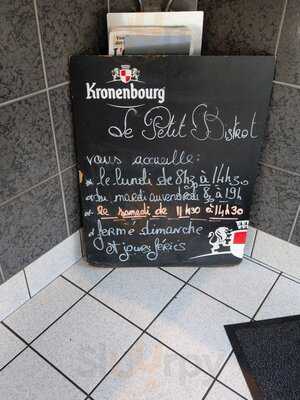 Kronenbourg
Le Petit Bistrot
vous accueille:
* le lundi de 8h30 à 14h30
* du mardi au vendredi 8h à 19h
* le samedi de 11h30 à 14h30
* fermé dimanche
et jours fériés